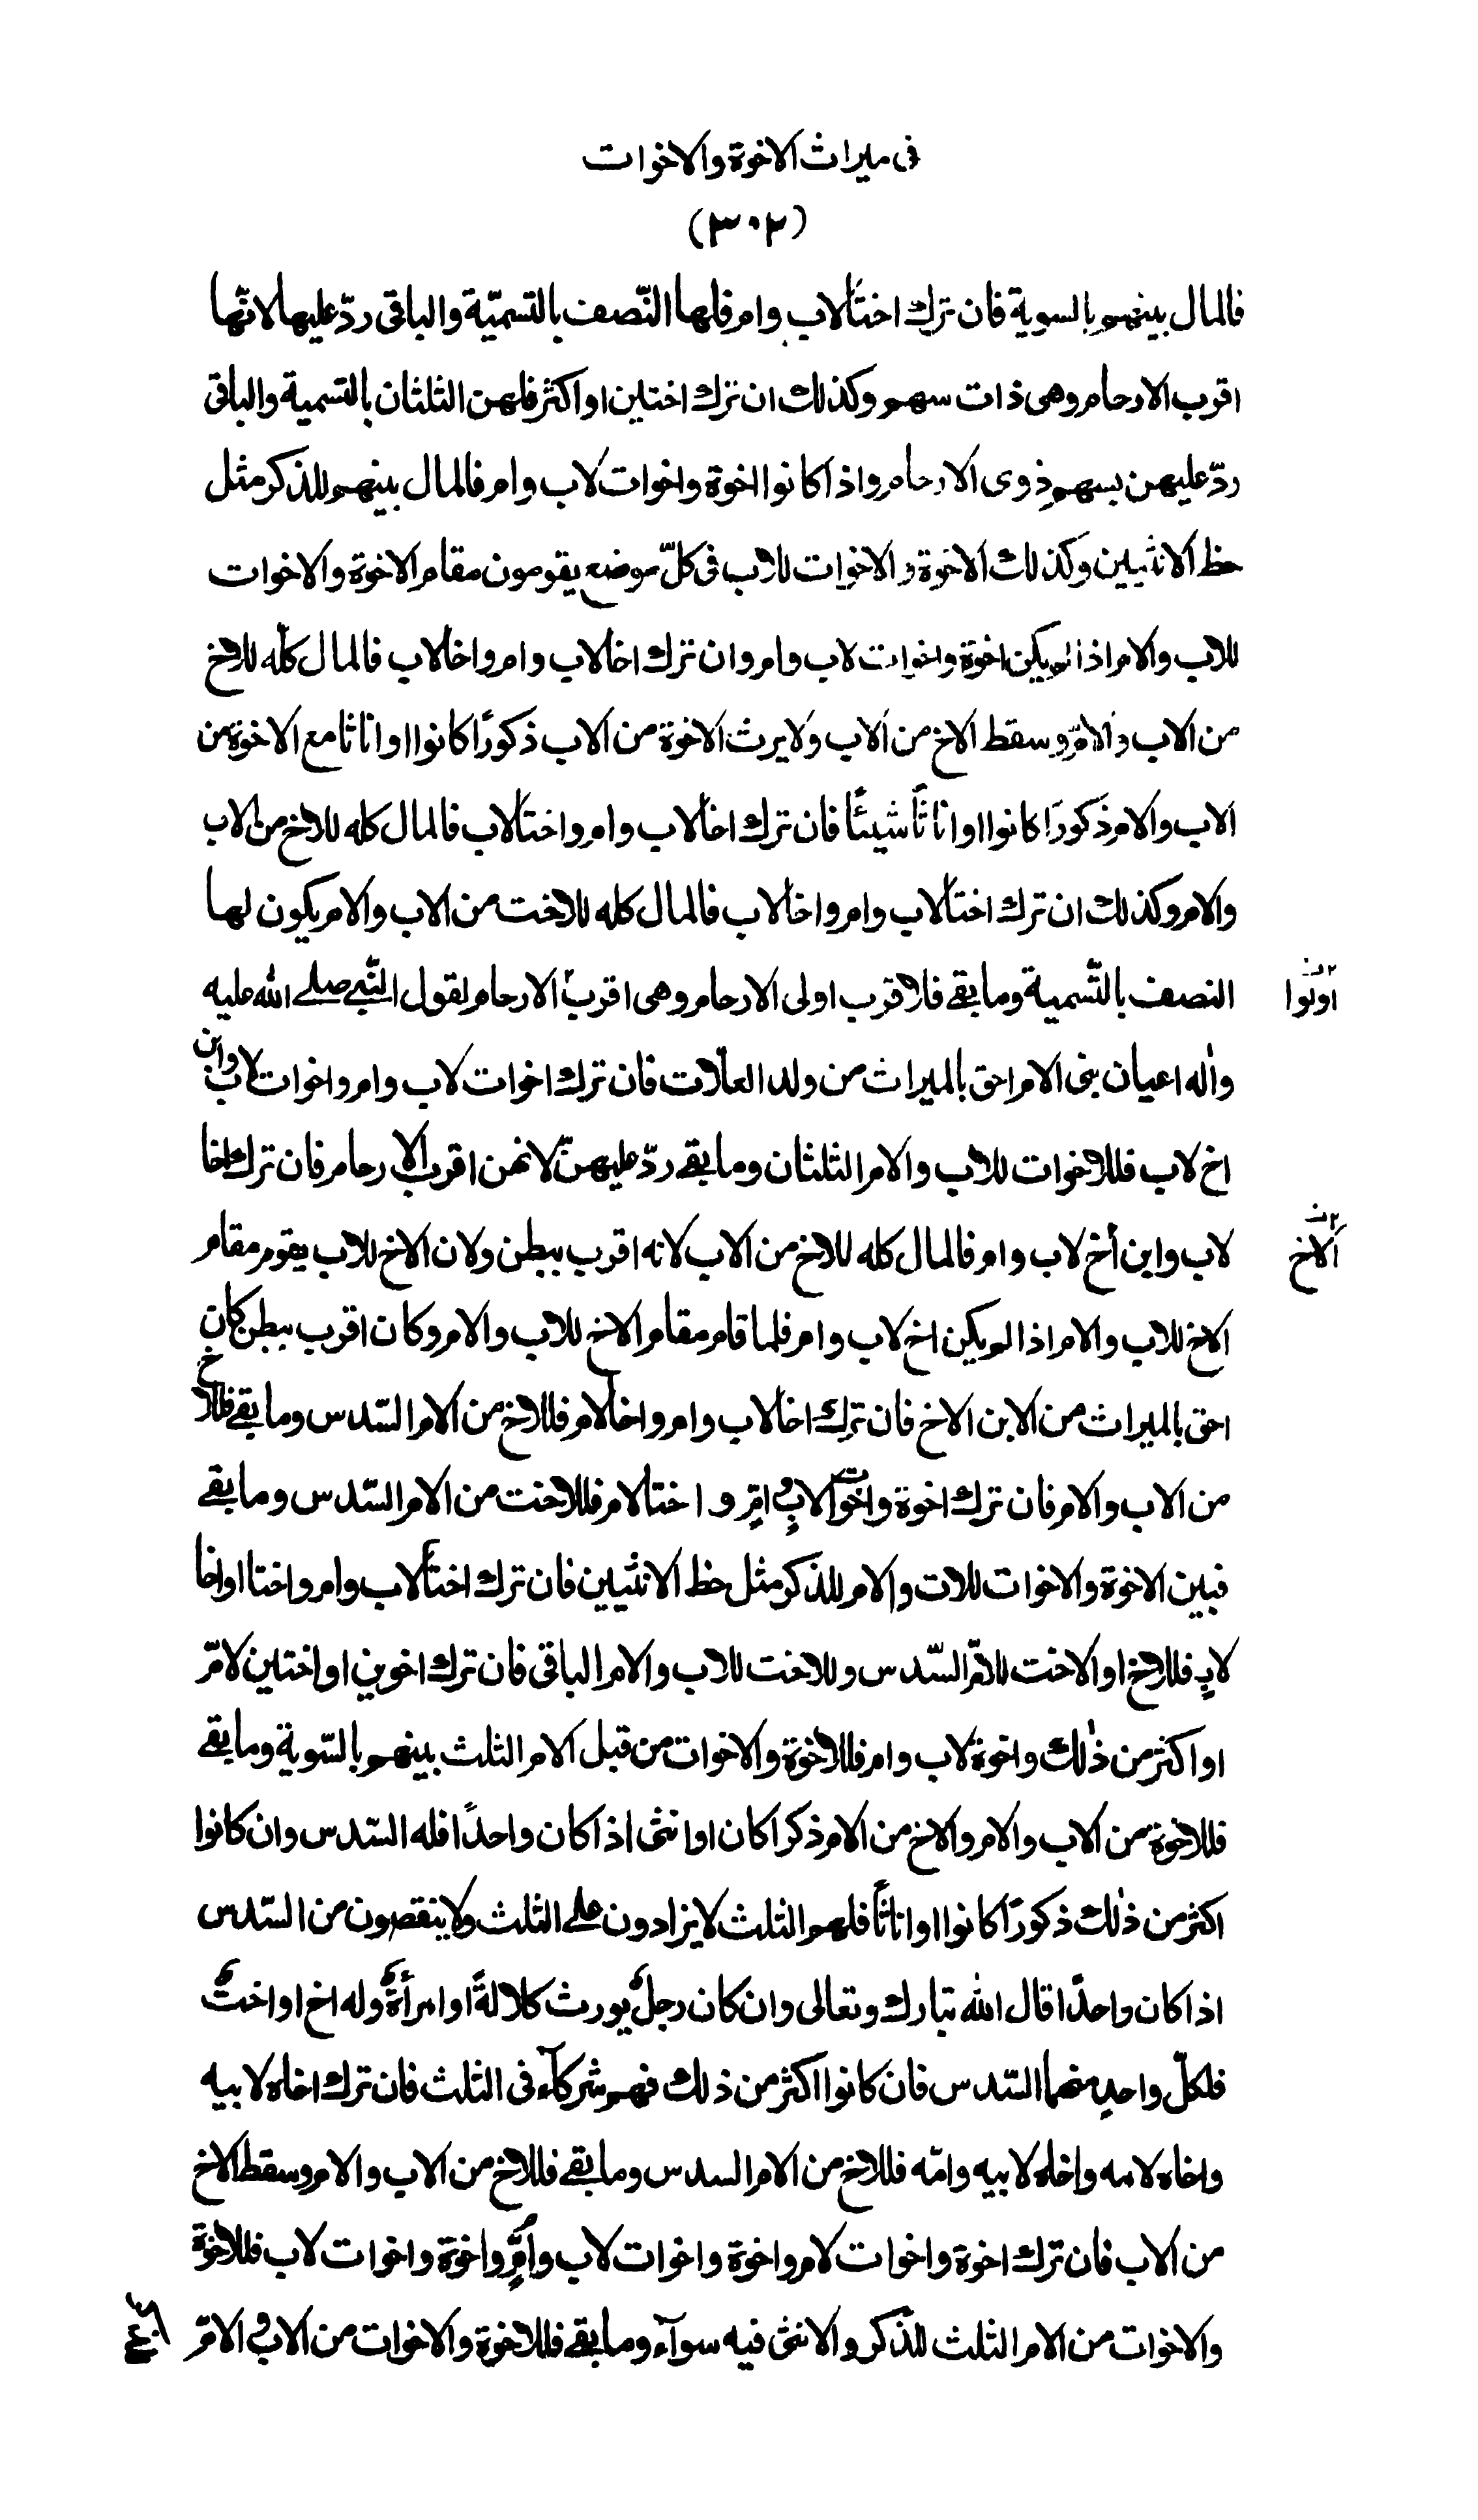 فى ميراث الاخوة والاخوات
(٣٠٢)
فالمال بينهم بالسوية فان ترك اختًا لاب وام فلها النّصف بالتسميّة والباقى ردّ عليها لانّها
اقرب الارحام وهى ذات سهم وكذلك ان ترك اختين او اكثر فلهن الثلثان بالتسمية والباقى
ردّ عليهن بسهم ذوى الارحام واذا كانوا اخوة واخوات لاب وام فالمال بينهم للذكر مثل
حظ الانثيين وكذلك الاخوة والاخوات للاب فى كلّ موضع يقومون مقام الاخوة والاخوات
للاب والام اذا لم يكن اخوة واخوات لاب وام وان ترك اخا لاب وام واخا لاب فالمال كلّه للاخ
من الاب والامّ وسقط الاخ من الاب ولا يرث الاخوة من الاب ذكورًا كانوا او اناثا مع الاخوة من
الاب والام ذكورًا كانوا او اناثًا شيئًا فان ترك اخا لاب وام واختًا لاب فالمال كله للاخ من الاب
والام وكذلك ان ترك اختًا لاب وام واخا لاب فالمال كله للاخت من الاب والام يكون لها
النصف بالتّسمية وما بقے فلاقرب اولى الارحام وهى اقرب الارحام لقول النّبے صلے الله عليه
اولوا
واٰله اعيان بنى الام احق بالميراث من ولد العلّات فان ترك اخوات لاب وام واخوات لاب وابن
اخ لاب فللاخوات للاب والام الثلثان وما بقے ردّ عليهنّ لانهن اقرب الارحام فان ترك اخا
لاب وابن أخ لاب وام فالمال كله للاخ من الاب لانه اقرب ببطن ولان الاخ للاب يقوم مقام
الاخ
الاخ للاب والام اذا لم يكن اخ لاب وام فلما قام مقام الاخ للاب والام وكان اقرب ببطن كان
احق بالميراث من الابن الاخ فان ترك اخا لاب وام واخا لام فللاخ من الام السّدس وما بقے فللاخ
من الاب والام فان ترك اخوة واخوات لابٍ وامٍّ و اختا لام فللاخت من الام السّدس وما بقے
فبين الاخوة والاخوات للات والام للذكر مثل حظ الانثيين فان ترك اختًا لاب وام واختا او اخا
لابٍ فللاخ او الاخت للامّ السّدس وللاخت للاب والام الباقى فان ترك اخوين او اختين لامّ
او اكثر من ذٰلك واخوة لاب وام فللاخوة والاخوات من قبل الام الثلث بينهم بالسّوية وما بقے
فللاخوة من الاب والام والاخ من الام ذكرا كان او انثى اذا كان واحدًا فله السّدس وان كانوا
اكثر من ذٰلك ذكورًا كانوا او اناثًا فلهم الثلث لا يزادون علے الثلث ولا ينقصون من السّدس
اذا كان واحدًا قال الله تبارك وتعالى وان كان رجلٌ يورث كلالةً او امرأةٌ وله اخ او اختٌ
فلكلّ واحدٍ منهما السّدس فان كانوا اكثر من ذلك فهم شركآء فى الثلث فان ترك اخاه لابيه
واخاه لامه واخاه لابيه وامّه فللاخ من الام السدس وما بقے فللاخ من الاب والام وسقط الاخ
من الاب فان ترك اخوة واخوات لام واخوة واخوات لاب وامٍّ واخوة واخوات لاب فللاخوة
والاخوات من الام الثلث للذكر والانثى فيه سوآء وما بقے فللاخوة والاخوات من الاب والامّ